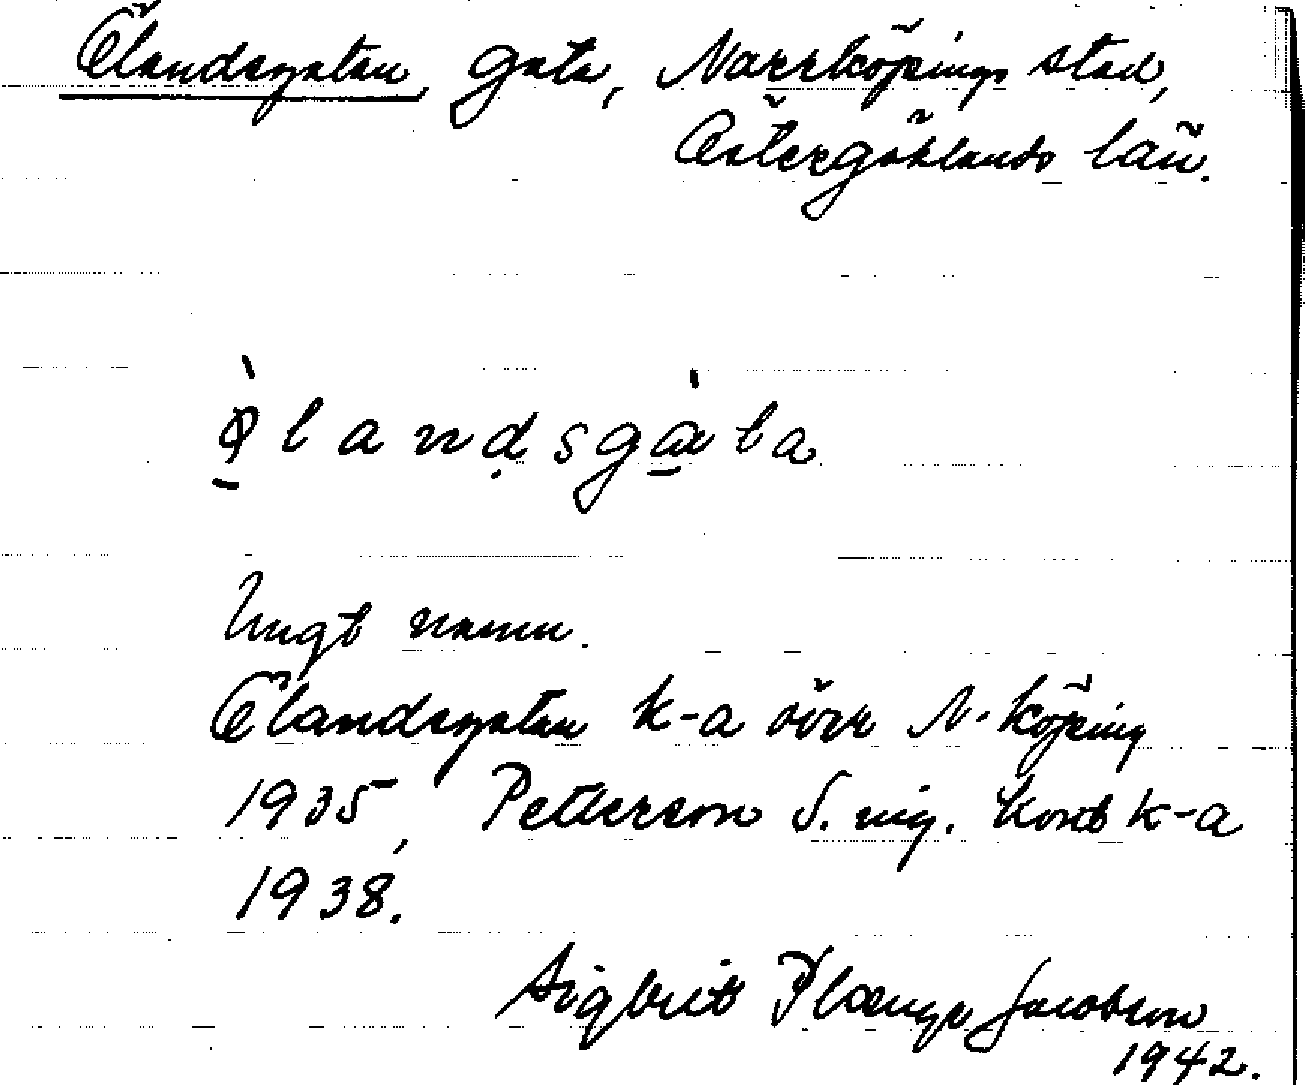 Ölandsgatan, gata, Norrköpings stad,
Östergötlands län.
ø̀landsgàta
Ungt namn.
Ölandsgatan k-a över N-köping
1935, Petterson S. ing. Kont k-a
1938.
Sigbrit Plænge Jacobson
1942.